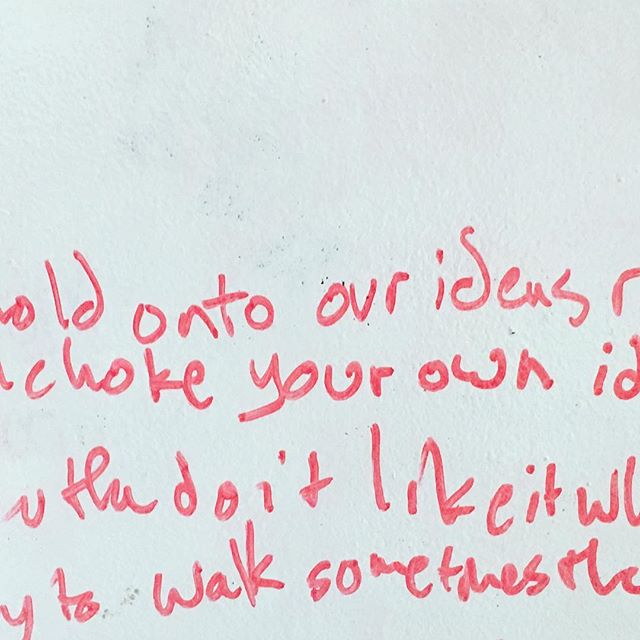 hold onto our ideas r
choke your own id
do it like it wh
y to walk sometimes the